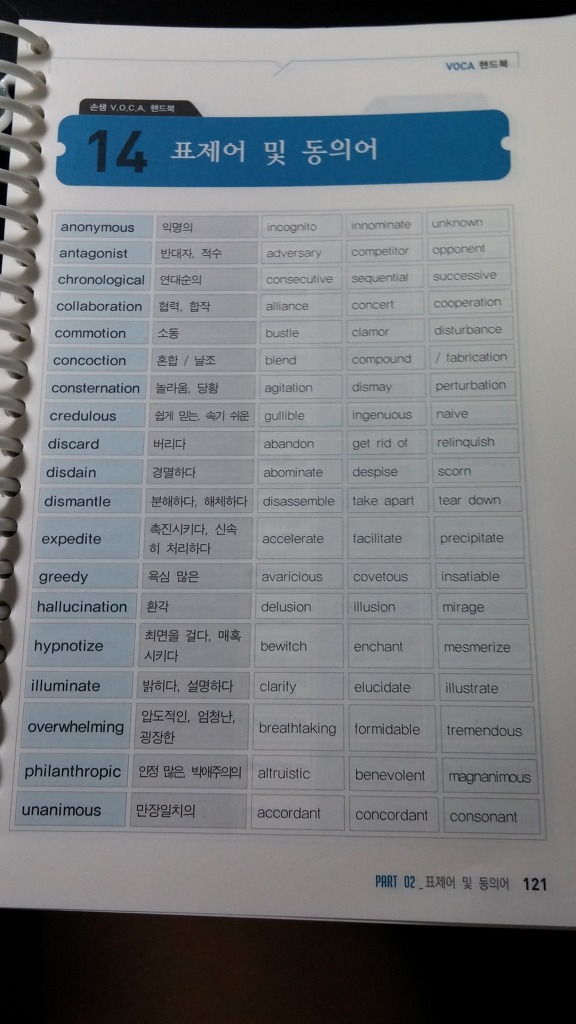 VOCA 핸드북
손샘 V.O.C.A. 핸드북
14 표제어 및 동의어
anonymous 익명의 incognito innominate unknown
antagonist 반대자, 적수 adversary competitor opponent
chronological 연대순의 consecutive sequential successive
collaboration 협력, 합작 alliance concert cooperation
commotion 소동 bustle clamor disturbance
concoction 혼합 / 날조 blend compound / fabrication
consternation 놀라움, 당황 agitation dismay perturbation
credulous 쉽게 믿는, 속기 쉬운 gullible ingenuous naive
discard 버리다 abandon get rid of relinquish
disdain 경멸하다 abominate despise scorn
dismantle 분해하다, 해체하다 disassemble take apart tear down
expedite 촉진시키다, 신속
히 처리하다 accelerate facilitate precipitate
greedy 욕심 많은 avaricious covetous insatiable
hallucination 환각 delusion illusion mirage
hypnotize 최면을 걸다, 매혹
시키다 bewitch enchant mesmerize
illuminate 밝히다, 설명하다 clarify elucidate illustrate
overwhelming 압도적인, 엄청난,
굉장한 breathtaking formidable tremendous
philanthropic 인정 많은, 박애주의의 altruistic benevolent magnanimous
unanimous 만장일치의 accordant concordant consonant
PART 02_표제어 및 동의어 121